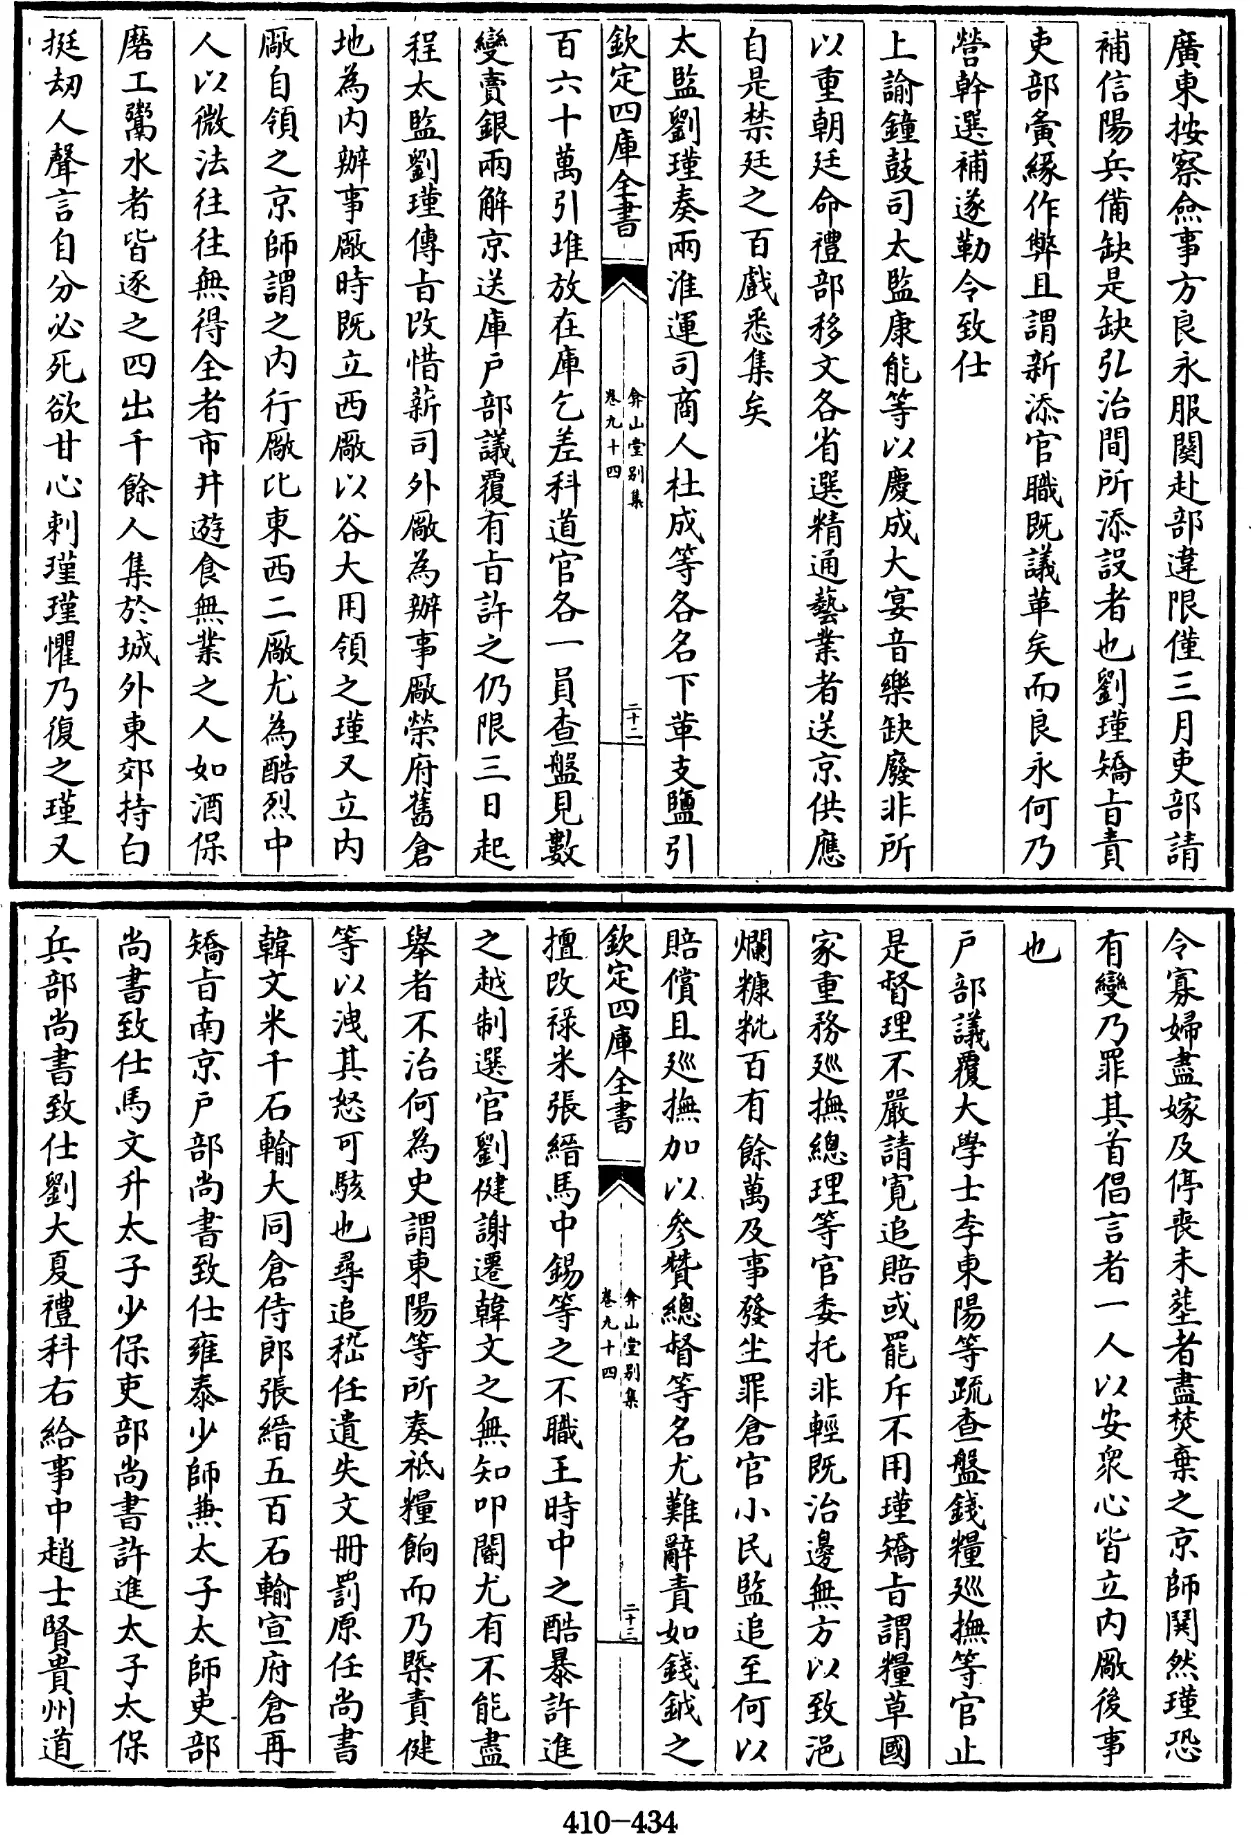 廣東按察僉事方良永服闋赴部違限僅三月吏部請
補信陽兵備缺是缺弘治間所添設者也劉瑾矯旨責
吏部夤緣作弊且謂新添官職既議革矣而良永何乃
營幹選補遂勒令致仕
上諭鐘鼓司太監康能等以慶成大宴音樂缺廢非所
以重朝廷命禮部移文各省選精通藝業者送京供應
自是禁廷之百戲悉集矣
太監劉瑾奏兩淮運司商人杜成等各名下革支鹽引
欽定四庫全書
弇山堂別集
卷九十四
二十二
百六十萬引堆放在庫乞差科道官各一員查盤見數
變賣銀兩解京送庫户部議覆有旨許之仍限三日起
程太監劉瑾傳旨改惜薪司外厰為辦事厰榮府舊倉
地為内辦事厰時既立西厰以谷大用領之瑾又立内
厰自領之京師謂之内行厰比東西二厰尤為酷烈中
人以微法往往無得全者市井遊食無業之人如酒保
磨工鬻水者皆逐之四出千餘人集於城外東郊持白
挺刼人聲言自分必死欲甘心刺瑾瑾懼乃復之瑾又
令寡婦盡嫁及停喪未塟者盡焚棄之京師鬨然瑾恐
有變乃罪其首倡言者一人以安衆心皆立内厰後事
也
户部議覆大學士李東陽等疏查盤錢糧廵撫等官止
是督理不嚴請寛追賠或罷斥不用瑾矯旨謂糧草國
家重務廵撫總理等官委托非輕既治邊無方以致浥
爛糠粃百有餘萬及事發坐罪倉官小民監追至何以
賠償且廵撫加以參贊總督等名尤難辭責如錢鉞之
欽定四庫全書
弇山堂别集
卷九十四
二十三
擅改祿米張縉馬中錫等之不職王時中之酷暴許進
之越制選官劉健謝遷韓文之無知叩閽尤有不能盡
舉者不治何為史謂東陽等所奏祗糧餉而乃槩責健
等以洩其怒可駭也尋追嵇任遺失文册罰原任尚書
韓文米千石輸大同倉侍郎張縉五百石輸宣府倉再
矯旨南京户部尚書致仕雍泰少師兼太子太師吏部
尚書致仕馬文升太子少保吏部尚書許進太子太保
兵部尚書致仕劉大夏禮科右給事中趙士賢貴州道
410-434